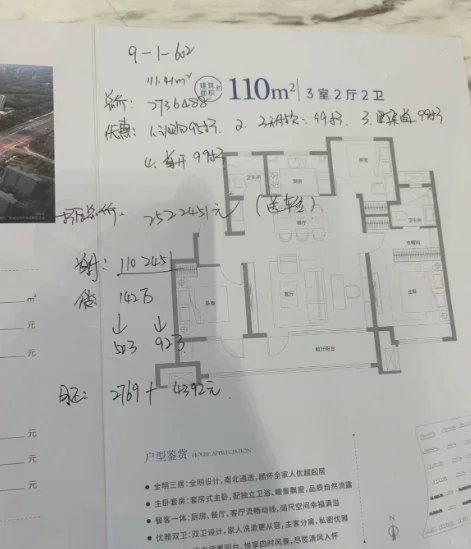 9-1-602
111.41m²
建筑面积约 110m² 3室2厅2卫
总价: 2736488
优惠: 95折 2. 99折 3. 99折
4. 99折
2522451元
首付: 1102451
贷: 142万
↓ ↓
50万 92万
2769+4392元
卫生间
厨房
卧室
餐厅
卫生间
衣帽间
卧室
客厅
主卧
景观阳台
m²
元
元
元
元
元
元
户型鉴赏 HOUSE APPRECIATION
● 全明三居:全明设计,南北通透,拥怀全家人优越起居
● 主卧套房:套房式主卧,配独立卫浴,瞰景飘窗,品质自然流露
● 餐客一体:厨房、餐厅、客厅流畅动线,阔尺空间幸福满溢
● 优雅双卫:双卫设计,家人洗漱更从容;主客分离,私密优雅
悦享四时风景,尽览清风入怀
N